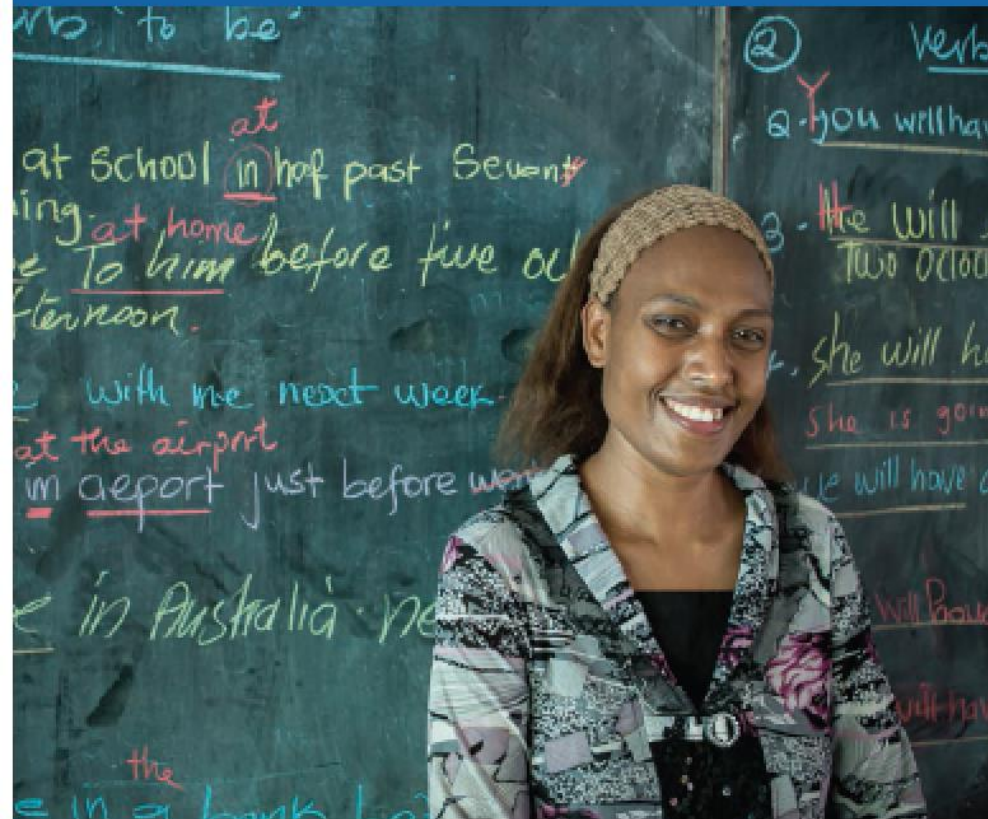 verb 'to be'
at
at School in haf past Seven
ing. at home
To him before five
fternoon.
with me next week.
at the airport
in aeport just before
in Australia ne
the
in a bank
2 Verb
Y
2. you will hav
3. He will
Two oclo
She will ha
She is goin
we will have
will
will hav